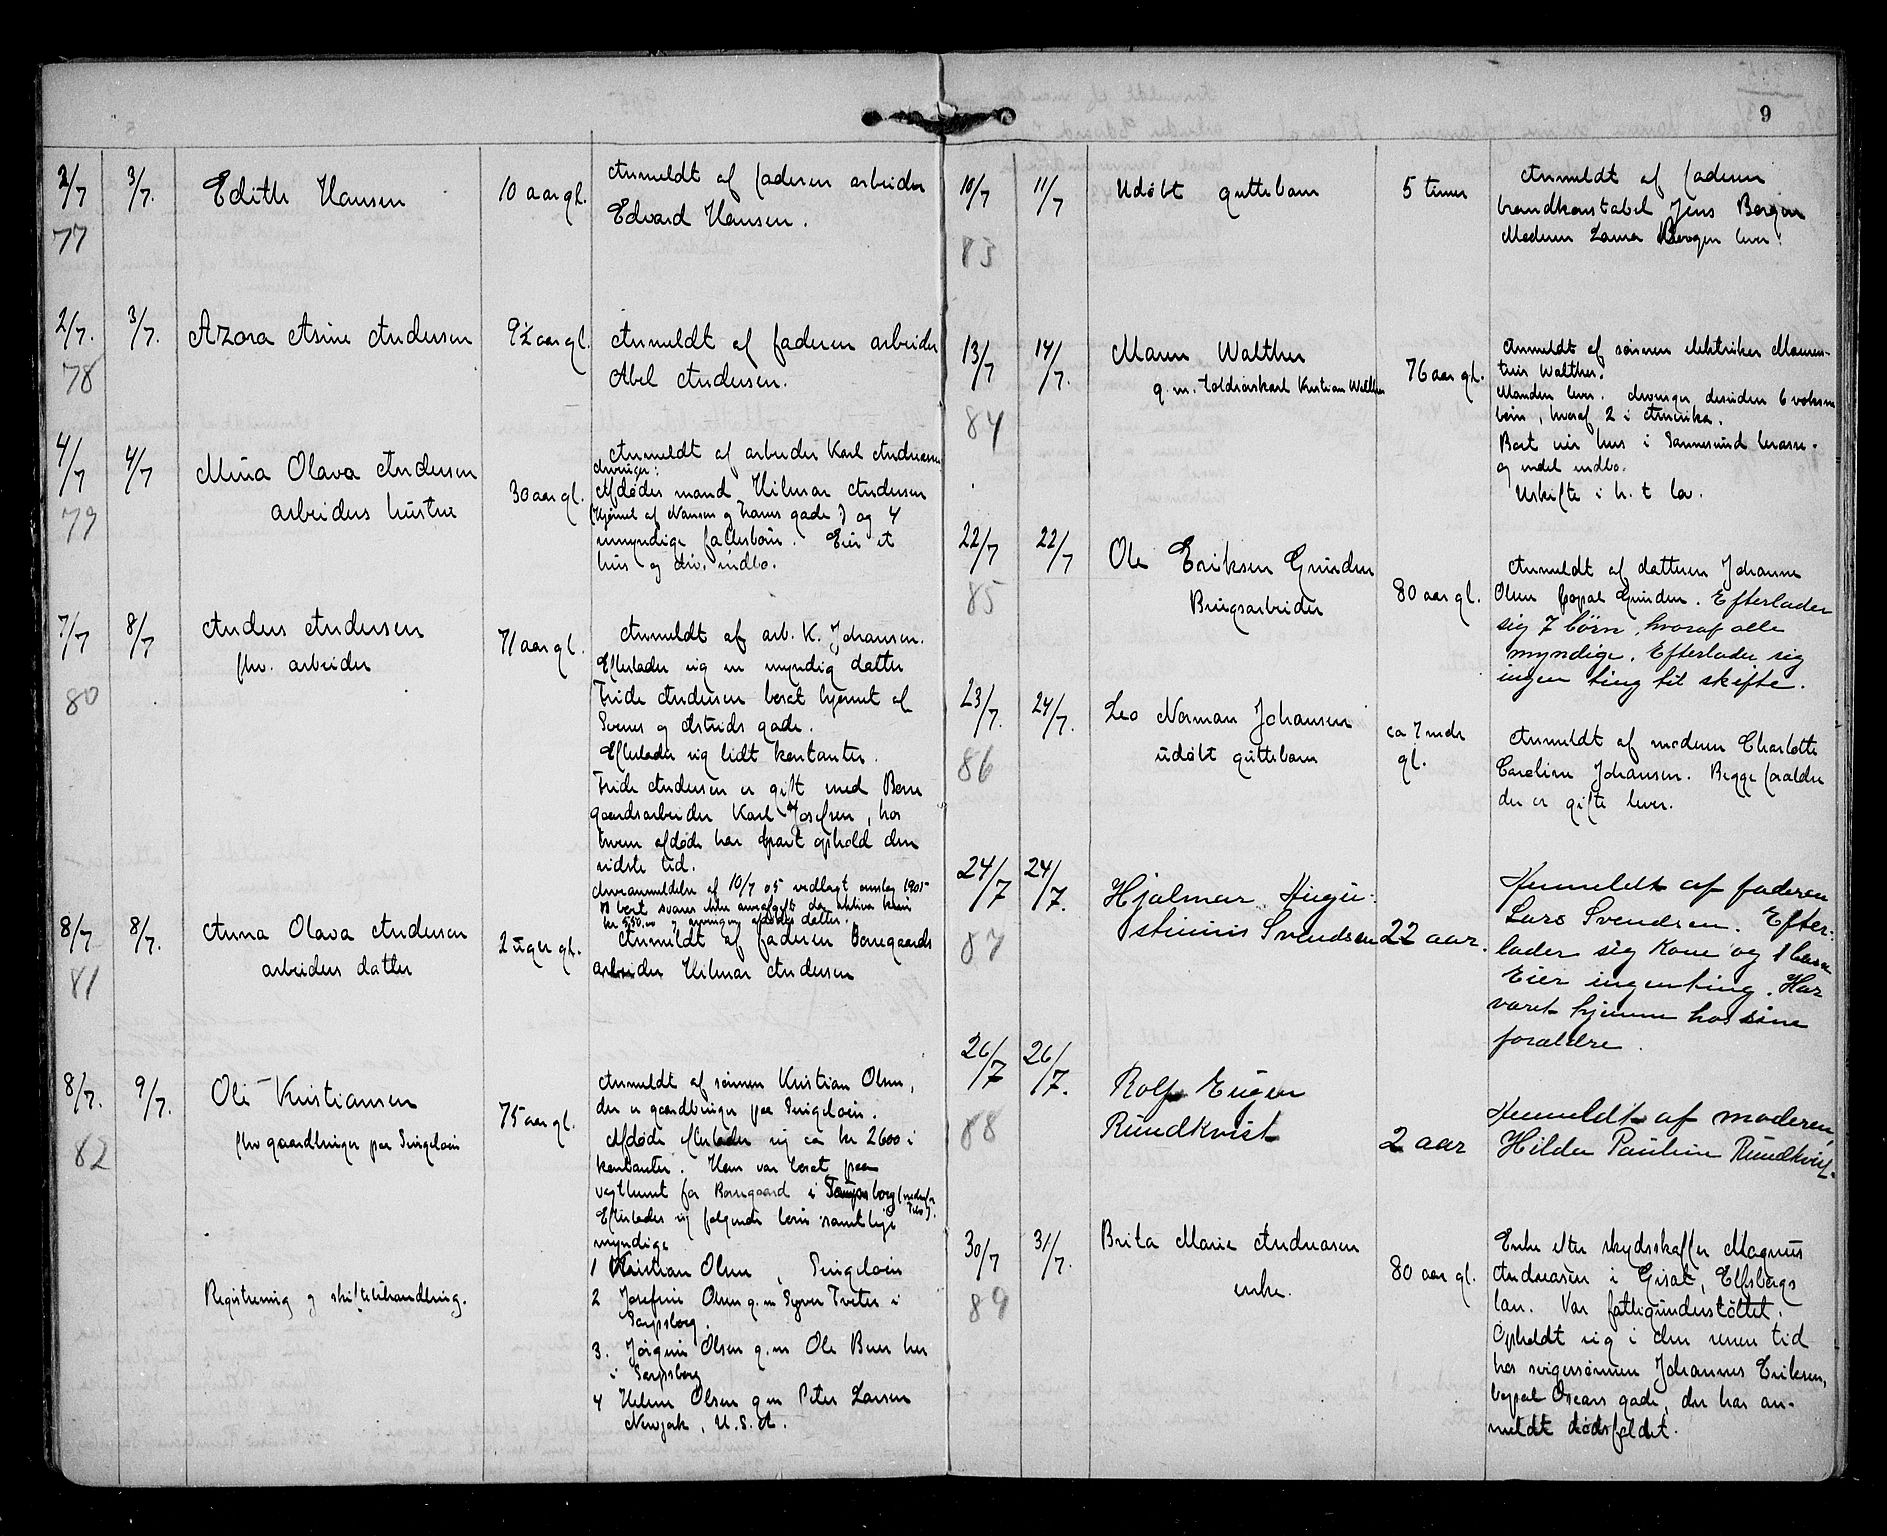 9
2/7 3/7. Edith Hansen 10 aar gl. Anmeldt af faderen arbeider
77 Edvard Hansen.
2/7. 3/7. Azora Asine Andersen 9½ aar gl. Anmeldt af faderen arbeider
78 Abel Andersen.
4/7 4/7 Mina Olava Andersen 30 aar gl. Anmeldt af arbeider Karl Andreasen
79 arbeiders hustru
arvinger:
Afdødes mand Hilmar Andersen
(Hjørnet af Nansen og gade) og 4
umyndige fællesbørn. Eier et
hus og div. indbo.
7/7 8/7 Anders Andersen 71 aar gl. Anmeldt af arb. K. Johansen.
80 fhv. arbeider
Efterlader sig en myndig datter
Fride Andersen boset hjørnet af
og Astrids gade.
Efterlader sig lidt kontanter.
Fride Andersen er gift med Borre
gaardsarbeider Karl Josefsen, hos
hvem afdøde har havt ophold den
sidste tid.
af 10/7 05 vedlagt omslag 1905
kr 550.00 og arving afdødes datter.
8/7 8/7. Anna Olava Andersen 2 uger gl. Anmeldt af faderen Borregaards
81 arbeiders datter
arbeider Hilmar Andersen
8/7. 9/7. Ole Kristiansen 75 aar gl. Anmeldt af sønnen Kristian Olsen,
82 fhv gaardbruger paa Singeløen
der er gaardbruger paa Singeløen.
Afdøde efterlader sig ca kr 2600 i
kontanter. Han var boset paa
for Borregaard i Sarpsborg
Efterlader sig følgende børn samtlige
myndige
1 Kristian Olsen, Singeløen
Registrering og skiftebehandling.
2 Josefine Olsen g.m Syver Tveter i
Sarpsborg.
3. Jørgine Olsen g.m Ole Buer her
i Sarpsborg
4 Helene Olsen g m Peter Larsen
Newjork, U.S.A.
10/7 11/7 Udøbt guttebarn 5 timer Anmeldt af faderen
83 brandkonstabel Jens Bergen
Moderen Laura Bergen lever.
13/7 14/7. Maren Walther 76 aar gl. Anmeldt af sønnen elektriker Mauren-
84 g.m. Kristian Walther
tius Walther.
Manden lever. Arvinger desuden 6 voksne
børn, hvoraf 2 i Amerika.
Bort eier hus i Sannesund
og endel indbo.
Uskifte i h. t lov.
22/7 22/7 Ole Eriksen Grinden 80 aar gl. Anmeldt af datteren Johanne
85 Brugsarbeider
Olsen Grinden. Efterlader
sig 7 børn, hvoraf alle
myndige. Efterlader sig
ingen ting til skifte.
23/7. 24/7. Leo Norman Johansen ca 7 mdr gl. Anmeldt af moderen Charlotte
86 udøbt guttebarn
Caroline Johansen. Begge forældre
der er gifte lever.
24/7 24/7. Hjalmar Augu- 22 aar. Anmeldt af faderen
87 stinius Svendsen
Lars Svendsen. Efter-
lader sig kone og 1 barn
Eier ingenting. Har
været hjemme hos sine
forældre.
26/7 26/7. Rolf Eugen
88 Rundkvist 2 aar Anmeldt af moderen,
Hilda Pauline Rundkvist.
30/7 31/7. Brita Marie Andreasen 80 aar gl. Enke efter skydsskaffer Magnus
89 enke.
Andreasen i Elfsborgs
lan. Var fattigunderstøttet.
Opholdt sig i den senere tid
hos svigersønnen Johannes Eriksen,
Oscars gade, der har an-
meldt dødsfaldet.